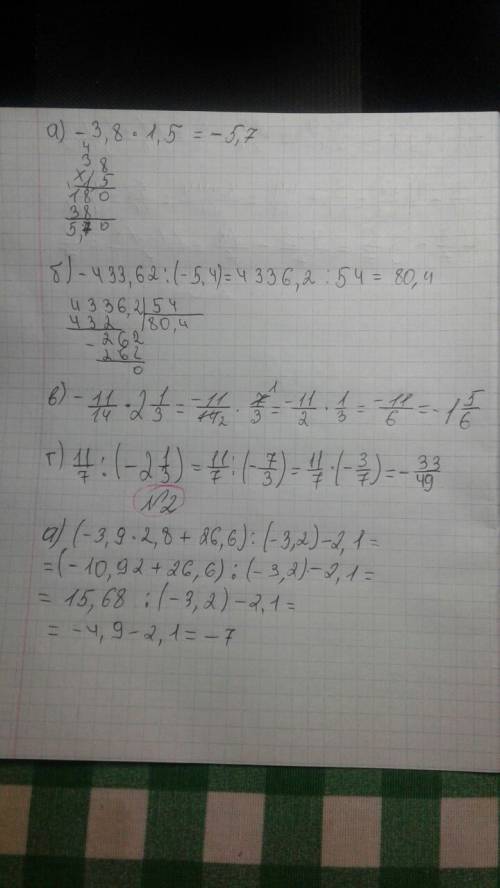 а) -3,8 · 1,5 = -5,7
4
38
× 15
180
38
5,70
б) -433,62 : (-5,4) = 4336,2 : 54 = 80,4
4336,2 | 54
432 | 80,4
- 262
262
0
в) -11/14 · 2 1/3 = -11/14 2 · 7 1/3 = -11/2 · 1/3 = -11/6 = -1 5/6
г) 11/7 : (-2 1/3) = 11/7 : (-7/3) = 11/7 · (-3/7) = -33/49
№2
а) (-3,9 · 2,8 + 26,6) : (-3,2) - 2,1 =
= (-10,92 + 26,6) : (-3,2) - 2,1 =
= 15,68 : (-3,2) - 2,1 =
= -4,9 - 2,1 = -7